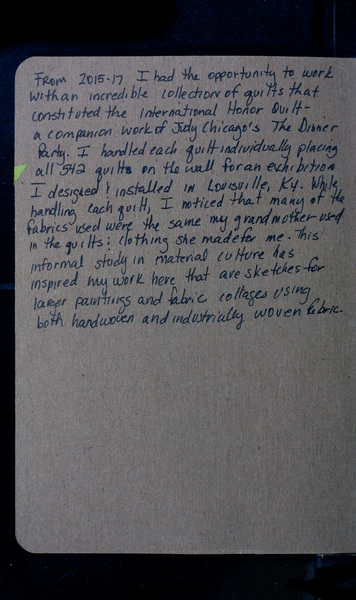 From 2015-17 I had the opportunity to work
with an incredible collection of quilts that
constituted the International Honor Quilt-
a companion work of Judy Chicago's The Dinner
Party. I handled each quilt individually placing
all 542 quilts on the wall for an exhibition
I designed & installed in Louisville, Ky. While
handling each quilt, I noticed that many of the
fabrics used were the same my grandmother used
in the quilts & clothing she made for me. This
informal study in material culture has
inspired my work here that are sketches for
larger paintings and fabric collages using
both handwoven and industrially woven fabric.